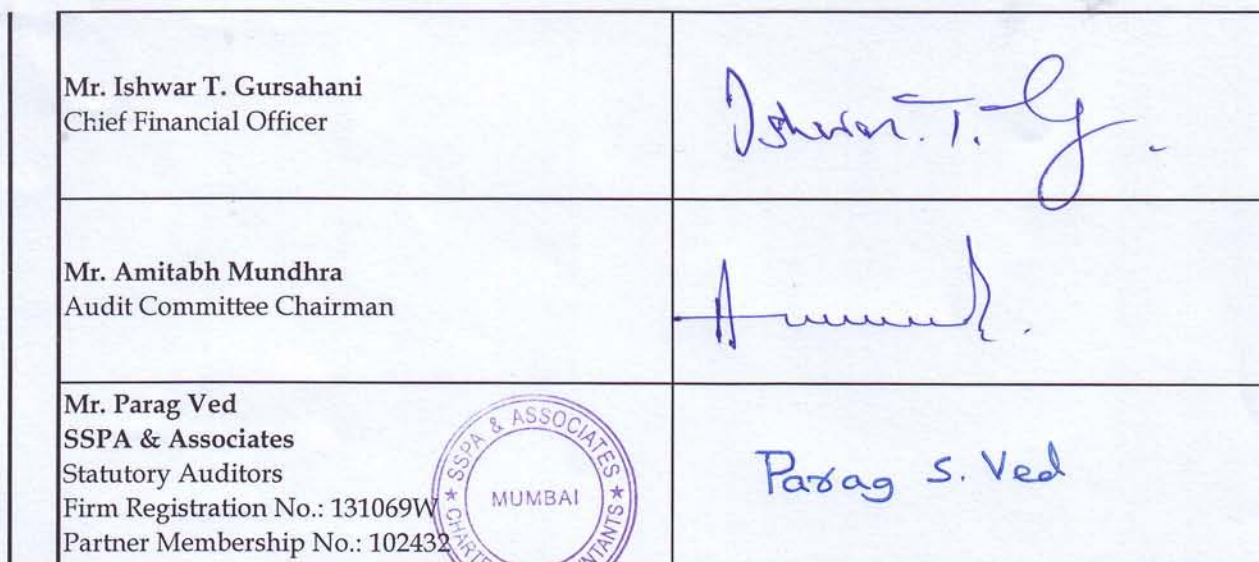 Mr. Ishwar T. Gursahani
Chief Financial Officer
Ishwar. T. G.
Mr. Amitabh Mundhra
Audit Committee Chairman
Mr. Parag Ved
SSPA & Associates
Statutory Auditors
Firm Registration No.: 131069W
Partner Membership No.: 102432
★ SSPA & ASSOCIATES ★
MUMBAI
Parag S. Ved